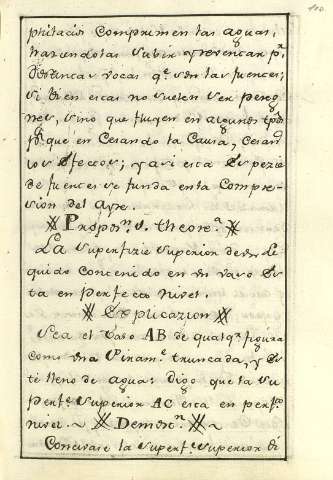 110
phitacio comprimen las aguas,
haziendolas subir y rebentar pr.
distintas vocas qe. son las fuentes;
si bien estas no suelen ser peren
nes, sino que fluyen en algunos tpos
pr. que en cesando la causa, cesan
los efectos; y asi esta espezie
de fuentes se funda en la compre-
sion del Ayre.
Propon. 5. theorea.
La superfizie superior de un Li
quido contenido en un vaso es
ta en perfecto nivel.
Explicazion
Sea el vaso AB de qualqr. figura
como una Pirame. truncada, y es
te lleno de agua: Digo que la su
perfe. superior AC esta en perfto.
nivel. Demostn.
Concivase la superfe. superior di